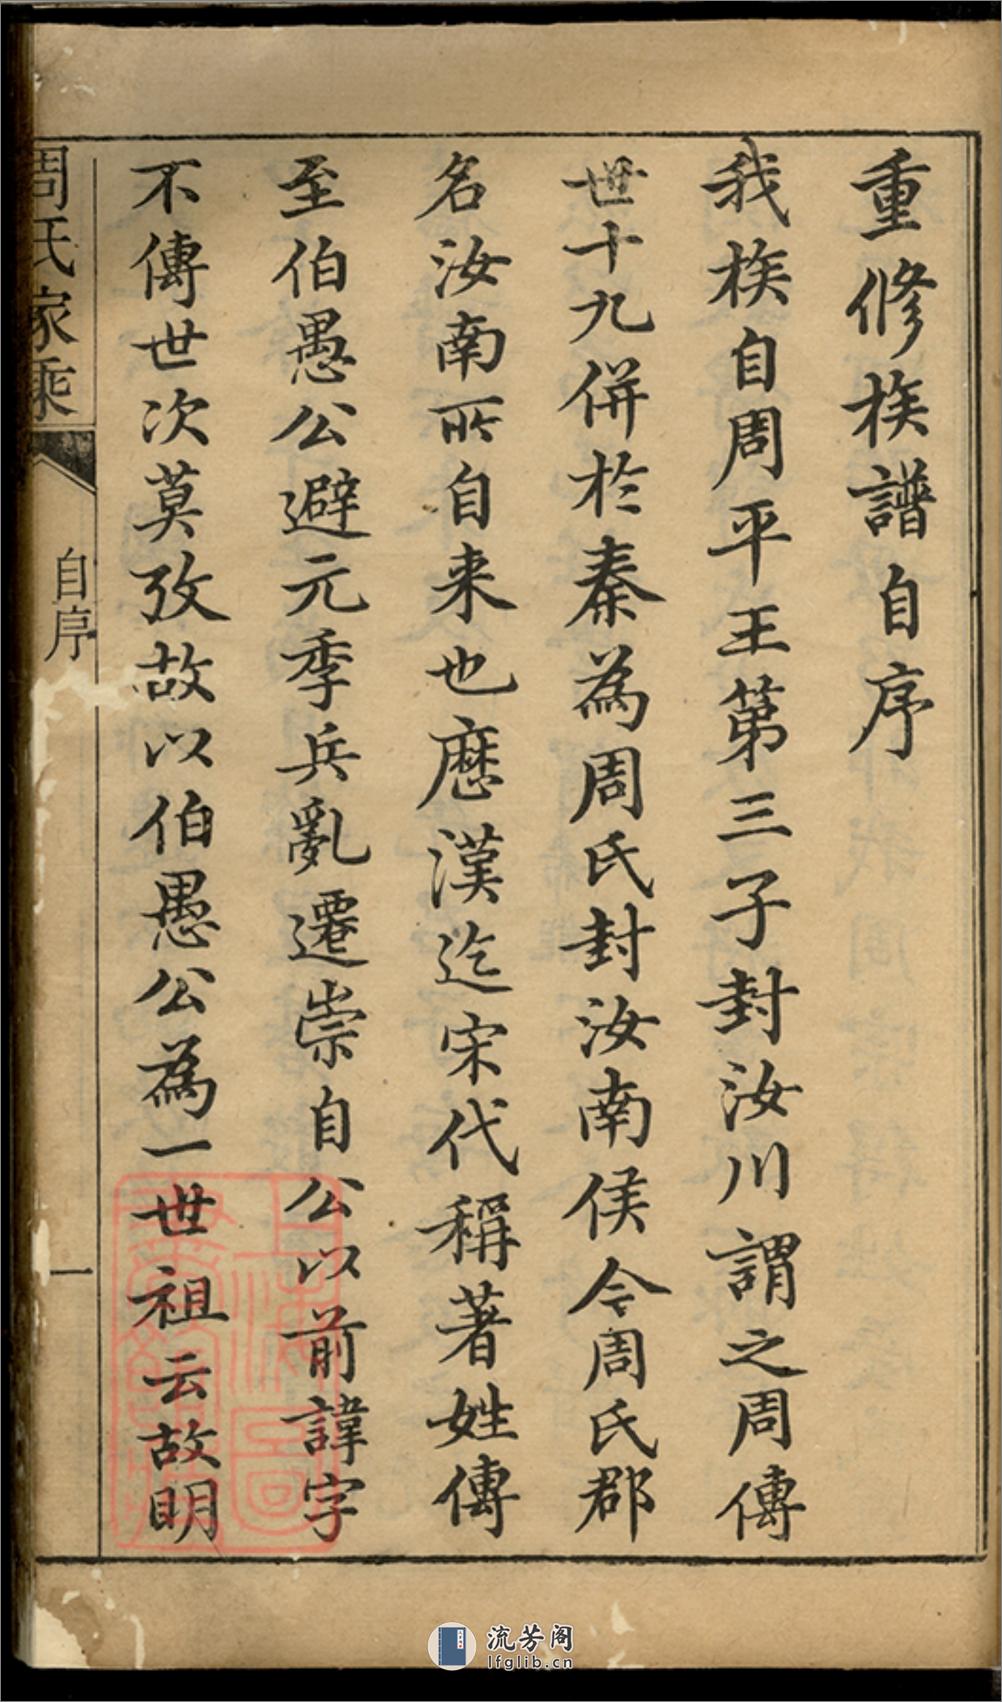 重修族譜自序
我族自周平王第三子封汝川謂之周傳
世十九併於秦為周氏封汝南侯今周氏郡
名汝南所自来也歷漢迄宋代稱著姓傳
至伯愚公避元季兵亂遷崇自公以前諱字
不傳世次莫攷故以伯愚公為一世祖云故明
周氏家乘
自序
一
流芳阁
lfglib.cn